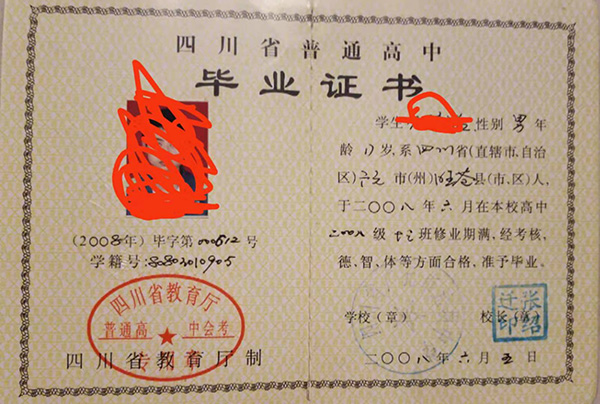 四川省普通高中
毕业证书
学生 性别 男 年
龄 17 岁,系 四川 省(直辖市、自治
区) 广元 市(州) 旺苍 县(市、区)人,
于二〇〇八年六月在本校高中
二〇〇八级 班修业期满,经考核,
德、智、体等方面合格,准予毕业。
学校(章) 校长(章)
二〇〇八年六月五日
(2008年)毕字第000512号
学籍号:80803010905
四川省教育厅
普通高中会考
专用章
四川省教育厅制
张绍
迁印